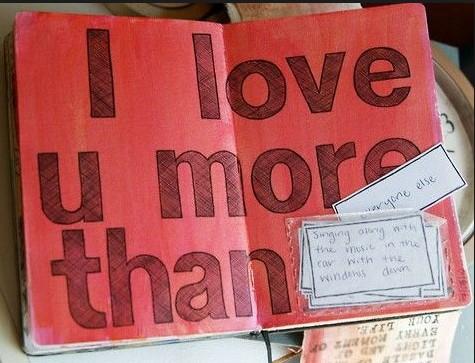 I love
u more
than
everyone else
Singing along with
the music in the
car with the
windows down
EVERY MOMENT OF
YOUR LIFE.